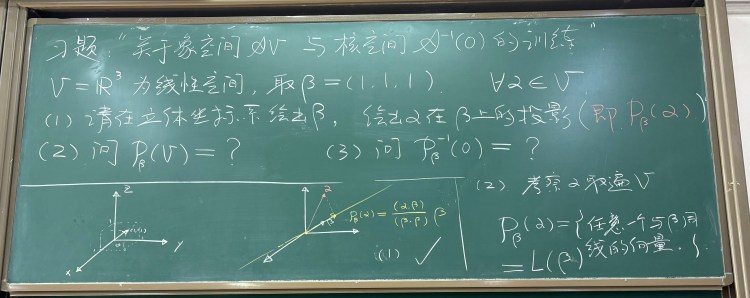 习题："关于象空间 𝒜V 与核空间 𝒜⁻¹(0) 的训练"
V=R³ 为线性空间, 取 β=(1,1,1). ∀α∈V
(1) 请在立体坐标系绘出β, 绘出α在β上的投影(即 P_β(α))
(2) 问 P_β(V)=? (3) 问 P_β⁻¹(0)=?
z
y
x
α
P_β(α)=(α,β)/(β,β) β
(1) ✓
(2) 考察α取遍V
P_β(α)={任意一个与β同
线的向量.}
=L(β)